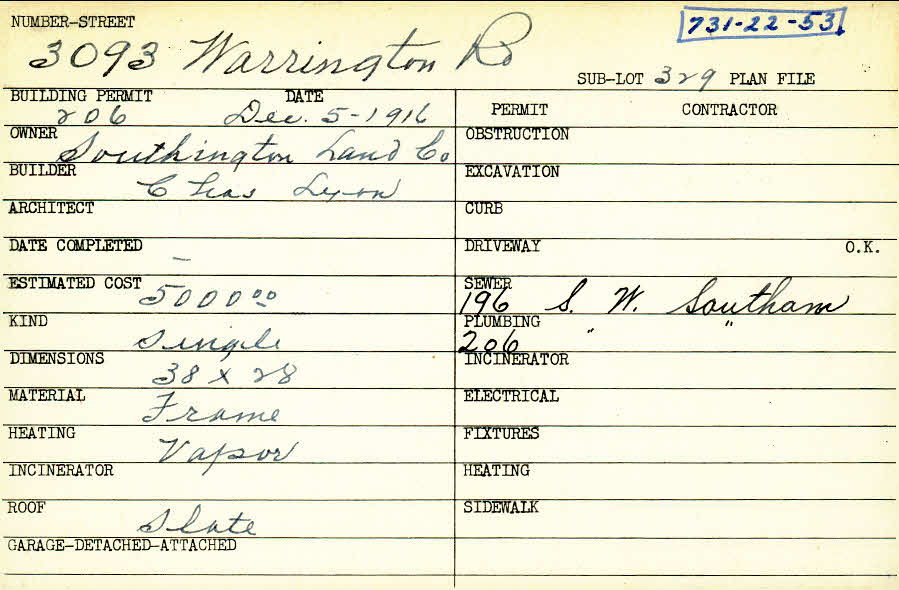 NUMBER-STREET
731-22-53
3093 Warrington Rd
SUB-LOT 329 PLAN FILE
BUILDING PERMIT DATE
206 Dec. 5-1916
PERMIT CONTRACTOR
OWNER
Southington Land Co
OBSTRUCTION
BUILDER
Chas Lyon
EXCAVATION
ARCHITECT
CURB
DATE COMPLETED
–
DRIVEWAY O.K.
ESTIMATED COST
5000 00
SEWER
196 S. W. Southam
KIND
Single
PLUMBING
206 " "
DIMENSIONS
38 x 28
INCINERATOR
MATERIAL
Frame
ELECTRICAL
HEATING
Vapor
FIXTURES
INCINERATOR
HEATING
ROOF
Slate
SIDEWALK
GARAGE-DETACHED-ATTACHED